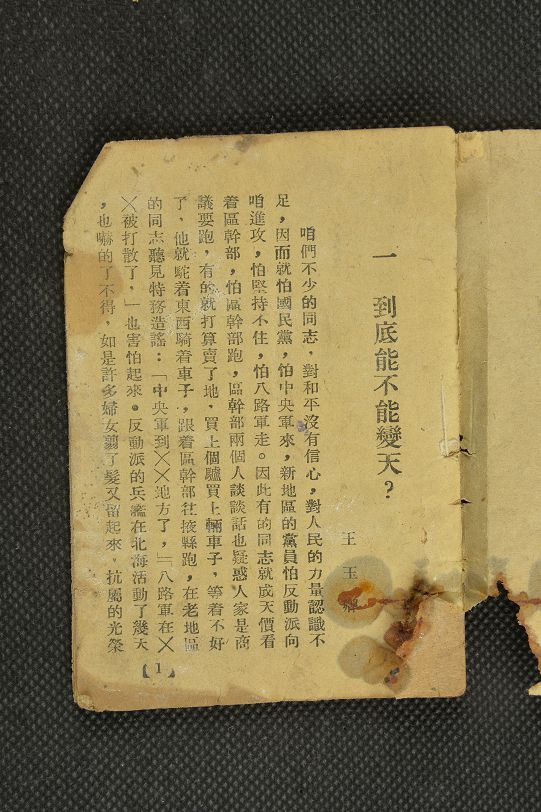 一 到底能不能變天？
王玉
咱們不少的同志，對和平沒有信心，對人民的力量認識不
足，因而就怕國民黨，怕中央軍來，新地區的黨員怕反動派向
咱進攻，怕堅持不住，怕八路軍走。因此有的同志就成天價看
着區幹部，怕區幹部跑，區幹部兩個人談談話也疑惑人家是商
議要跑，有的就打算賣了地，買上個驢買上輛車子，等着不好
了，他就駝着東西騎着車子，跟着區幹部往掖縣跑，在老地區
的同志聽見特務造謠：「中央軍到××地方了，」「八路軍在×
×被打散了，」也害怕起來。反動派的兵艦在北海活動了幾天
，也嚇的了不得，如是許多婦女剪了髮又留起來，抗屬的光榮
【1】